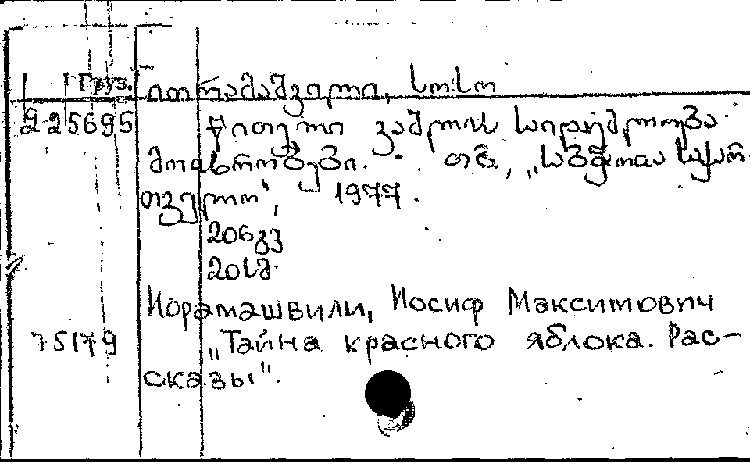 Груз.
იორამაშვილი, სოსო
225695 წითელი ვაშლის საიდუმლოება
მოთხრობები. თბ., „საბჭოთა საქარ-
თველო", 1977.
206გვ
20სმ
Иорамашвили, Иосиф Максимович
75179 „Тайна красного яблока. Рас-
сказы".